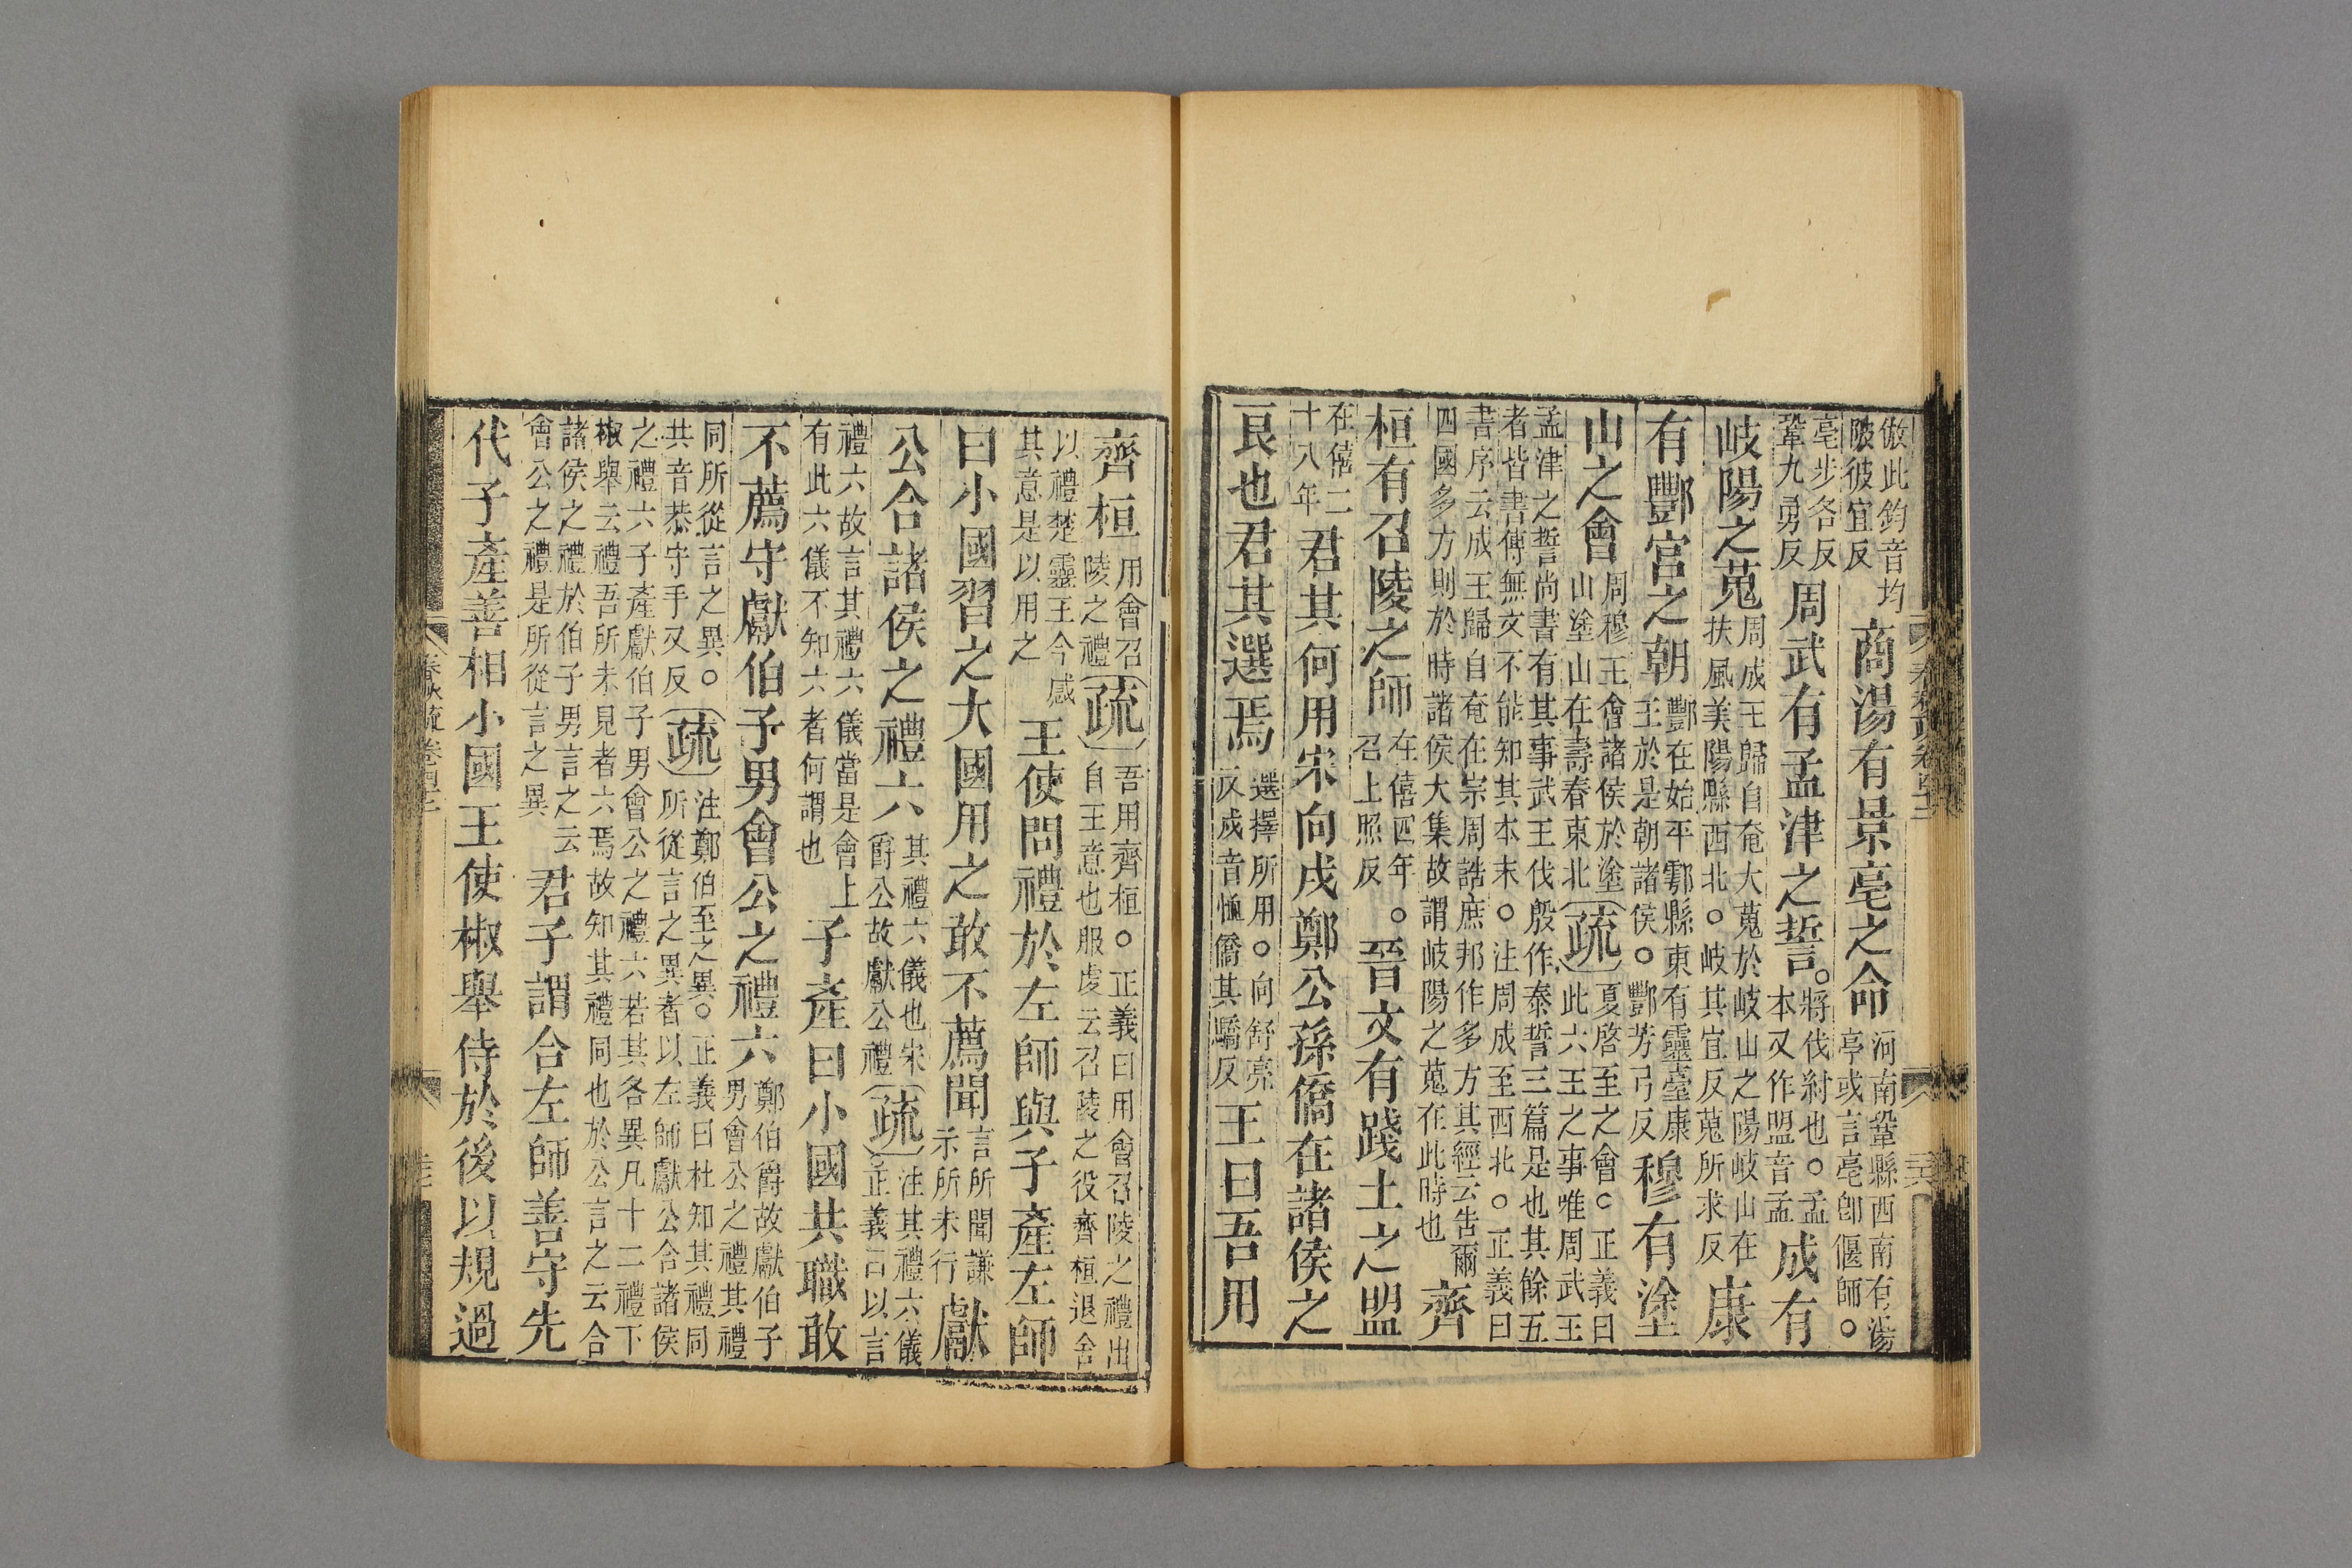 倣此鈞音均
陂彼宜反
商湯有景亳之命
河南鞏縣西南有湯
亭或言亳卽偃師。
亳步各反
鞏九勇反
周武有孟津之誓
將伐紂也。孟
本又作盟音孟
成有
岐陽之蒐
周成王歸自奄大蒐於岐山之陽岐山在
扶風美陽縣西北。岐其宜反蒐所求反
康
有酆宮之朝
酆在始平鄠縣東有靈臺康
王於是朝諸侯。酆芳弓反
穆有塗
山之會
周穆王會諸侯於塗
山塗山在壽春東北
疏
夏啓至之會。正義曰
此六王之事唯周武王
孟津之誓尚書有其事武王伐殷作泰誓三篇是也其餘五
者皆書傳無文不能知其本末。注周成至西北。正義曰
書序云成王歸自奄在宗周誥庶邦作多方其經云告爾
四國多方則於時諸侯大集故謂岐陽之蒐在此時也
齊
桓有召陵之師
在僖四年。
召上照反
晉文有踐土之盟
在僖二
十八年
君其何用宋向戌鄭公孫僑在諸侯之
良也君其選焉
選擇所用。向舒亮
反戌音恤僑其驕反
王曰吾用
齊桓
用會召
陵之禮
疏
吾用齊桓。正義曰用會召陵之禮出
自王意也服虔云召陵之役齊桓退舍
以禮楚靈王今感
其意是以用之
王使問禮於左師與子產左師
曰小國習之大國用之敢不薦聞
言所聞謙
示所未行
獻
公合諸侯之禮六
其禮六儀也宋
爵公故獻公禮
疏
注其禮六儀
。正義曰以言
禮六故言其禮六儀當是會上
有此六儀不知六者何謂也
子產曰小國共職敢
不薦守獻伯子男會公之禮六
鄭伯爵故獻伯子
男會公之禮其禮
同所從言之異。
共音恭守手又反
疏
注鄭伯至之異。正義曰杜知其禮同
所從言之異者以左師獻公合諸侯
之禮六子產獻伯子男會公之禮六若其各異凡十二禮下
椒舉云禮吾所未見者六焉故知其禮同也於公言之云合
諸侯之禮於伯子男言之云
會公之禮是所從言之異
君子謂合左師善守先
代子產善相小國王使椒舉侍於後以規過